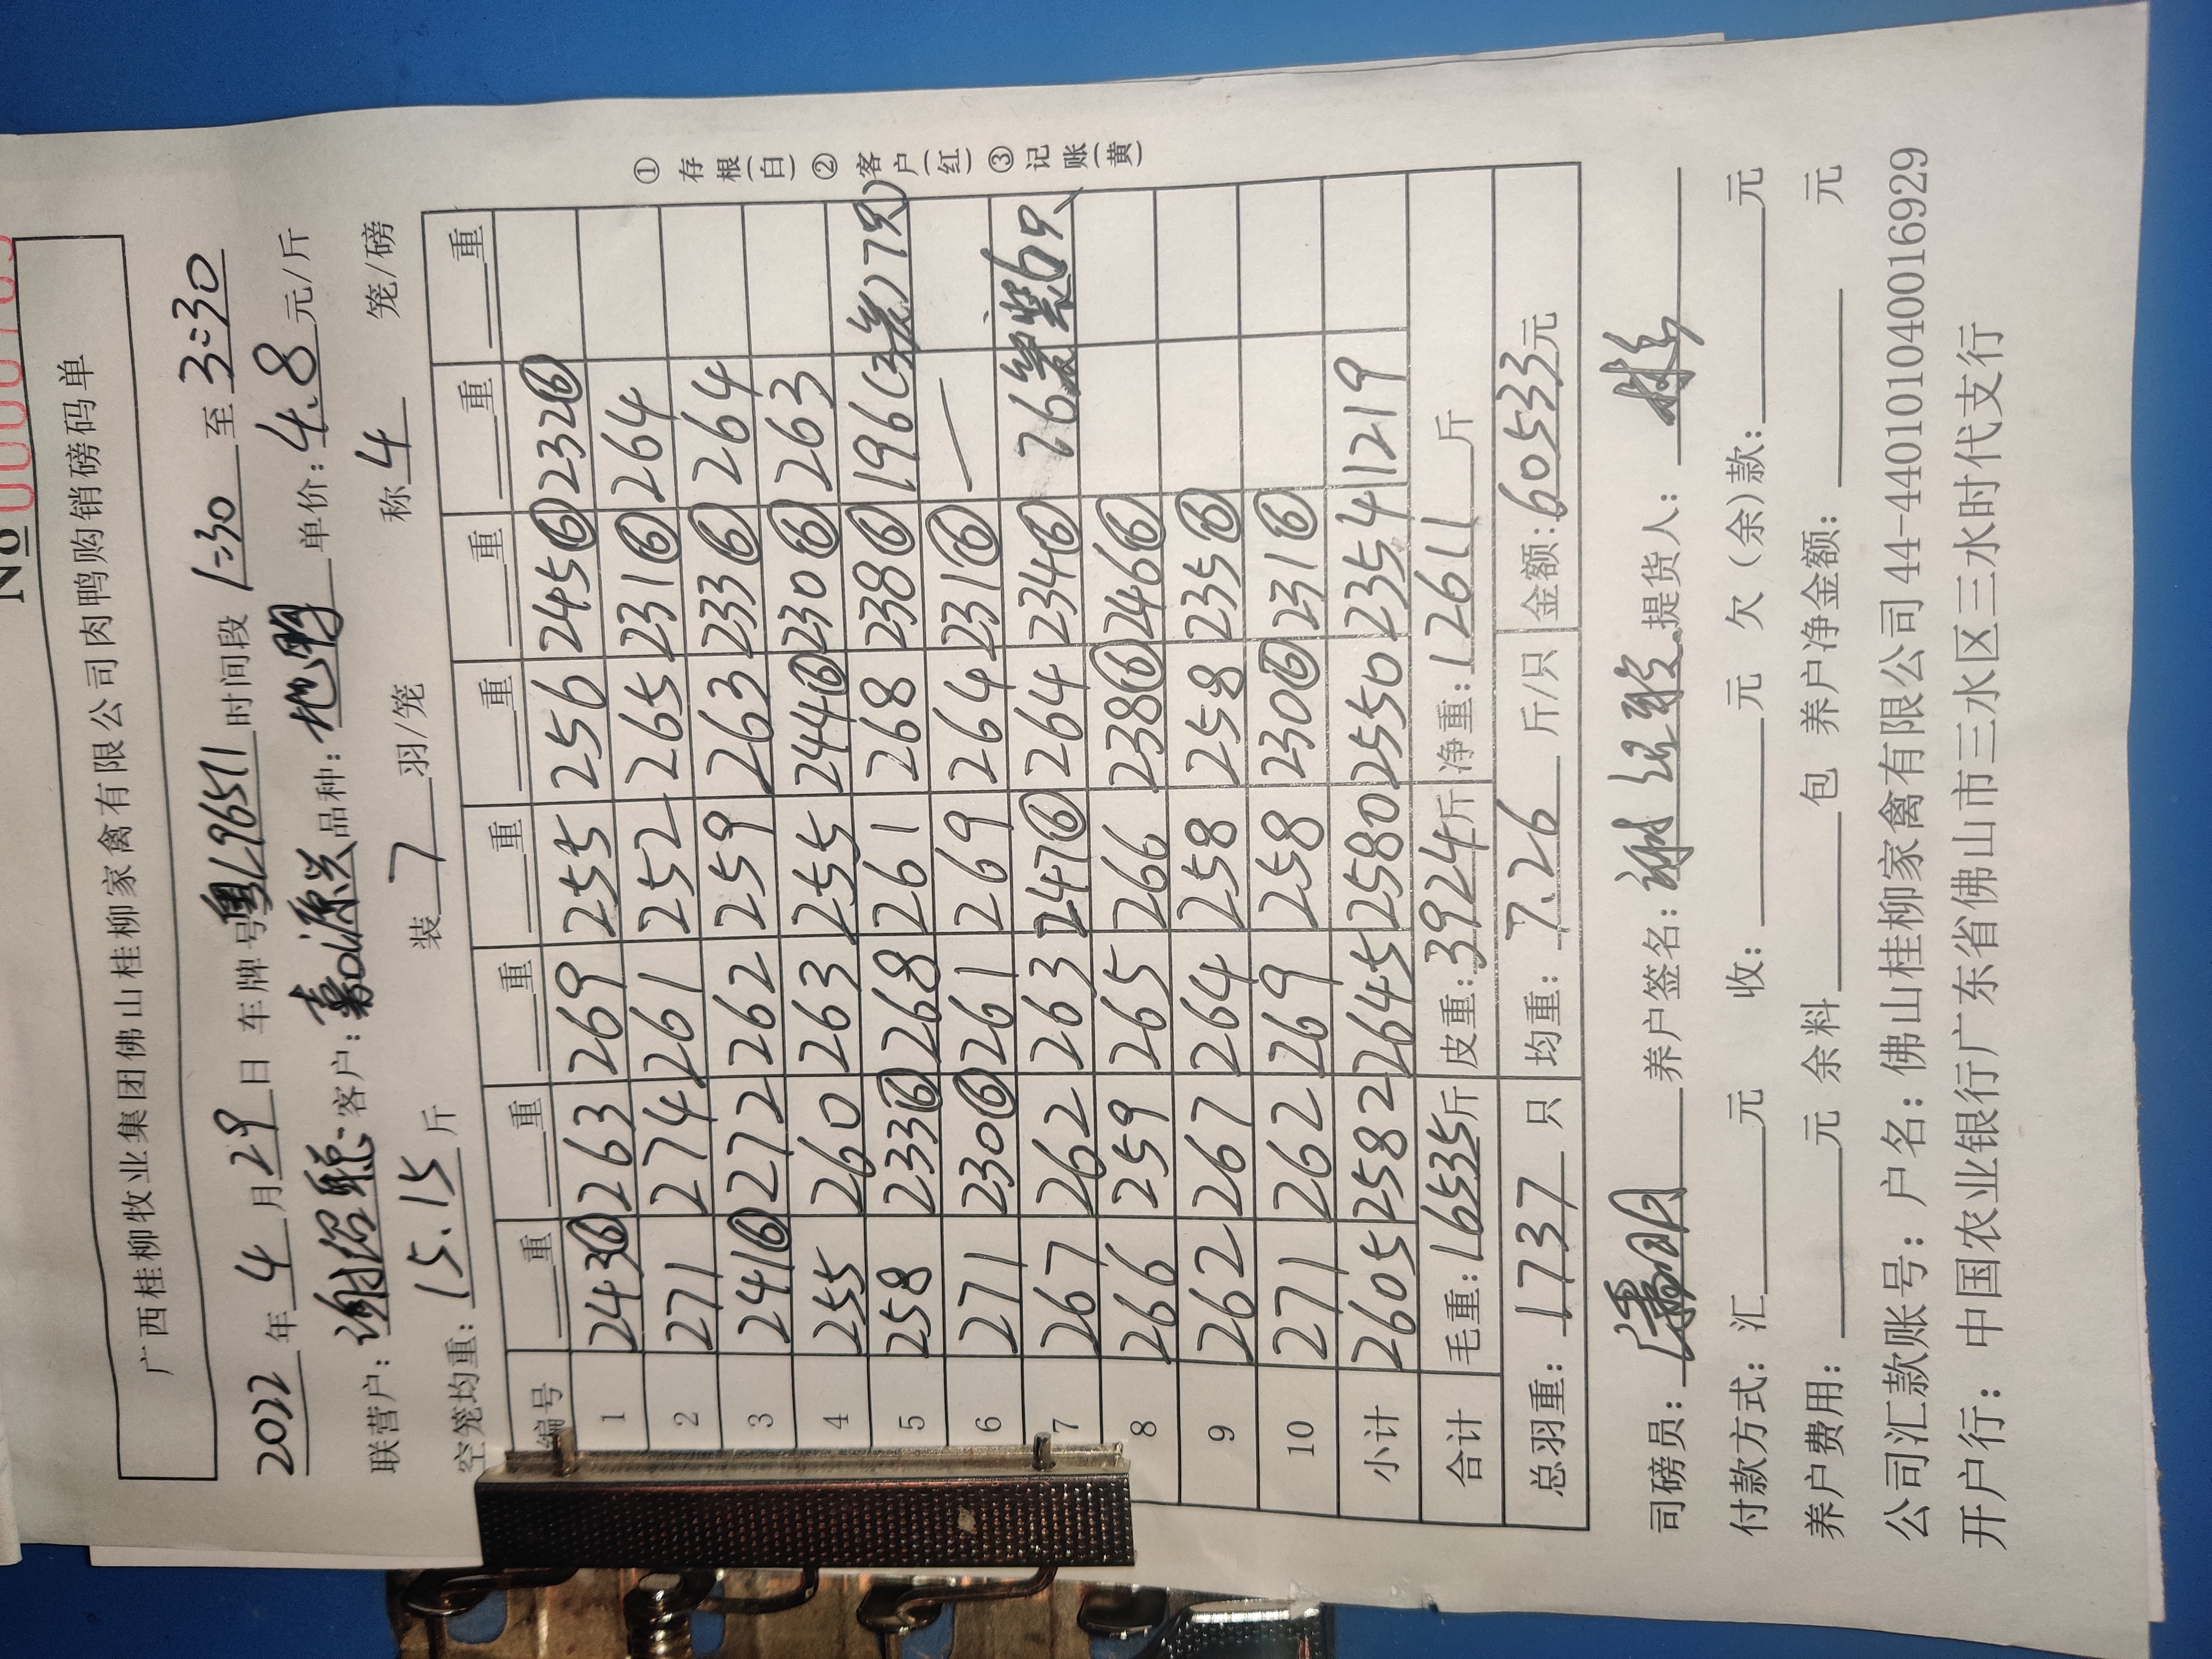 No
广西桂柳牧业集团佛山桂柳家禽有限公司肉鸭购销磅码单
2022年4月29日 车牌号粤L96511时间段1:30至3:30
联营户:谢绍聪 客户:嘉源兴 品种: 单价:4.8元/斤
空笼均重:15.15斤 装7羽/笼 称4笼/磅
编号 重 重 重 重 重 重 重 重
1 243⑥ 263 269 255 256 245⑥ 232⑥
2 271 274 261 252 265 231⑥ 264
3 241⑥ 272 262 259 263 233⑥ 264
4 255 260 263 255 244⑥ 230⑥ 263
5 258 233⑥ 268 261 268 238⑥ 196(3笼)17只)
6 271 230⑥ 261 269 264 231⑥ —
7 267 262 263 247⑥ 264 234⑥ 76
8 266 259 265 266 238⑥ 246⑥
9 262 267 264 258 258 235⑥
10 271 262 269 258 230⑥ 231⑥
小计 2605 2582 2645 2580 2550 2354 1219
合计 毛重:16535斤 皮重:3924斤 净重:12611斤
总羽重:1737只 均重:7.26斤/只 金额:60533元
①存根(白)②客户(红)③记账(黄)
司磅员: 养户签名:谢绍聪 提货人:林
付款方式:汇 元 收: 元 欠(余)款: 元
养户费用: 元 余料 包 养户净金额: 元
公司汇款账号:户名:佛山桂柳家禽有限公司44-440101040016929
开户行:中国农业银行广东省佛山市三水区三水时代支行